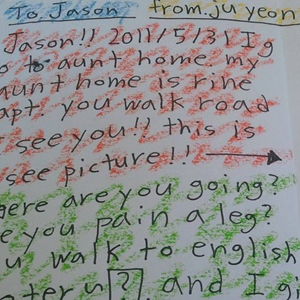 To. Jason from. ju yeon
Jason!! 2011/5/31 I g
o to aunt home. my
aunt home is rine
apt. you walk road
see you!! this is
see picture!!
ere are you going?
e you pain a leg?
u walk to english
ter u ? and I g